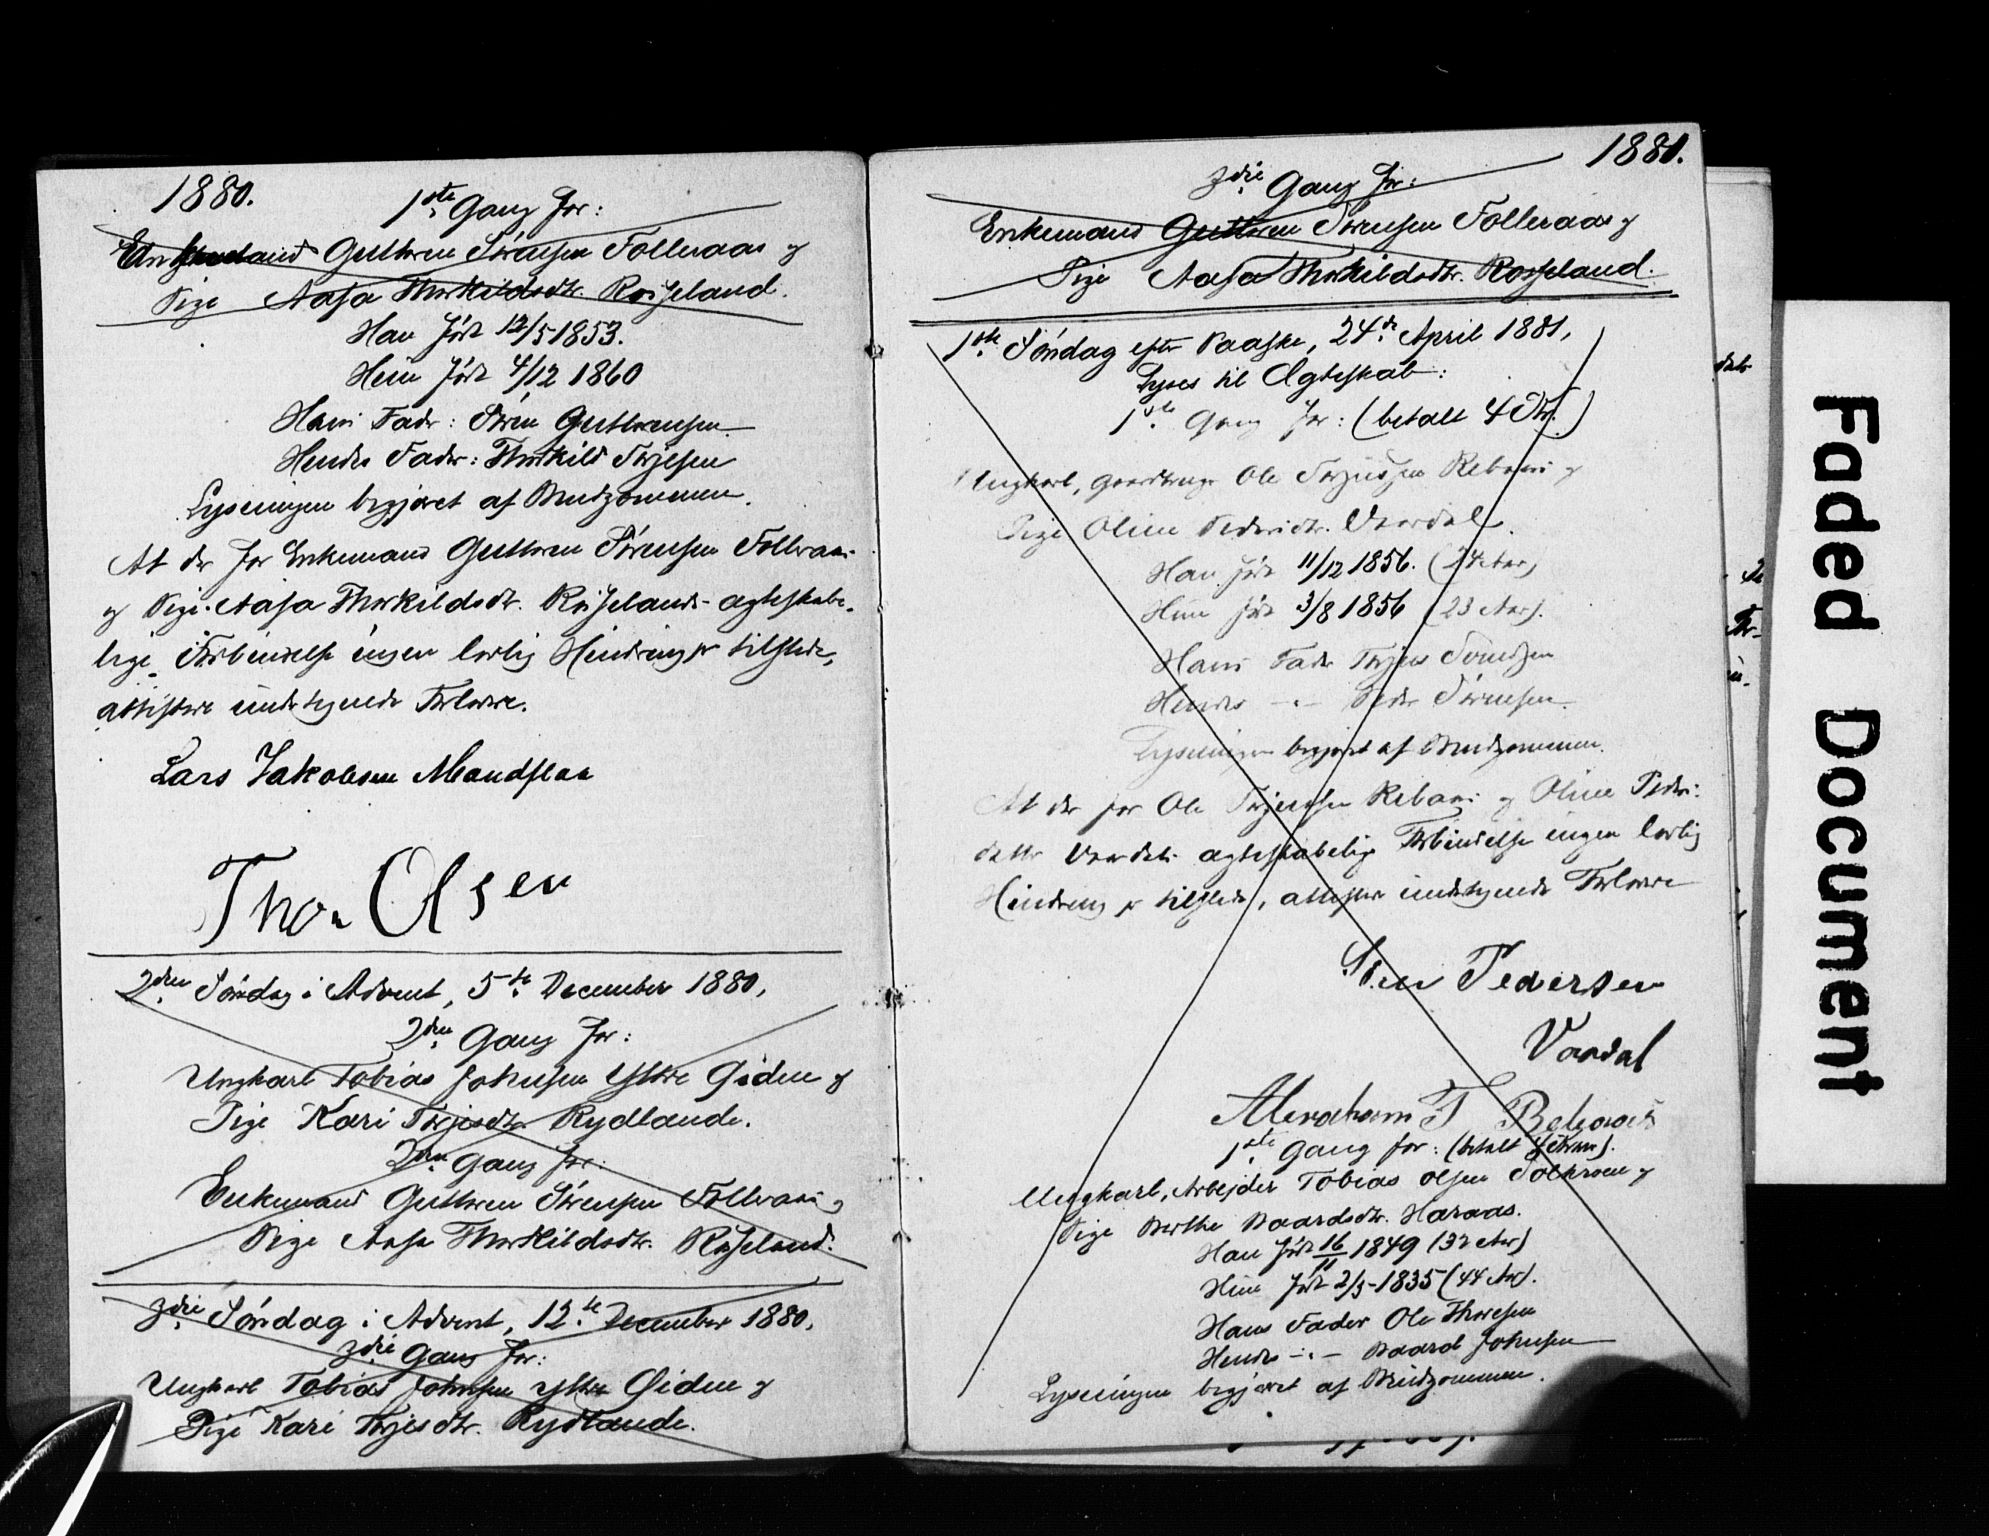 1880.
1ste Gang for:
Enkemand Guttorm Sörensen Folleraas og
Pige Aasa Thorkildsdtr. Röiseland.
Han född 12/5 1853.
Hun född 4/12 1860
Hans Fader: Sören Guttormsen
Hendes Fader: Thorkild Terjesen
Lysningen begjæret af Brudgommen.
At der for Enkemand Guttorm Sörensen Folleraas
og Pige Aasa Thorkildsdtr. Röiselands ægteskabe-
lige Forbindelse ingen lovlig Hindring er tilstede,
attesterer undertegnede Forlovere.
Lars Jakobsen Mandflaa
Thor Olsen
2den Söndag i Advent, 5te December 1880,
2den Gang for:
Ungkarl Tobias Johnsen Ytre Öiden og
Pige Kari Terjesdtr. Rydlande.
2den Gang for:
Enkemand Guttorm Sörensen Folleraas og
Pige Aasa Thorkildsdtr. Röiseland.
3die Söndag i Advent, 12te December 1880,
3die Gang for:
Ungkarl Tobias Johnsen Ytre Öiden og
Pige Kari Terjesdtr. Rydlande.
1881.
3die Gang for:
Enkemand Guttorm Sörensen Folleraas og
Pige Aasa Thorkildsdtr. Röiseland.
1ste Söndag efter Paaske, 24de April 1881,
lyses til Ægteskab:
1ste Gang for: (betalt 4 Kr.)
Ungkarl, Ole Terjussen og
Pige Oline Pedersdtr. Vaardal.
Han född 11/12 1856. (24 Aar)
Hun född 3/8 1856 (23 Aar).
Hans Fader Terjus
Hendes -"- Peder Sörensen
Lysningen begjæret af Brudgommen.
At der for Ole Terjussen og Oline Peders-
datter Vaardals ægteskabelige Forbindelse ingen lovlig
Hindring er tilstede, attesterer undertegnede Forlovere
Sören Pedersen
Vaardal
Abraham T
1ste Gang for: (betalt 4 Kroner).
Ungkarl, Arbejder Tobias Olsen og
Pige Berthe Baardsdtr. Haraas.
Han född 16/11 1849 (32 Aar)
Hun född 2/3 1835 (44 Aar).
Hans Fader Ole Thorsen
Hendes -"- Baard Johnsen
Lysningen begjæret af Brudgommen.
Faded Document